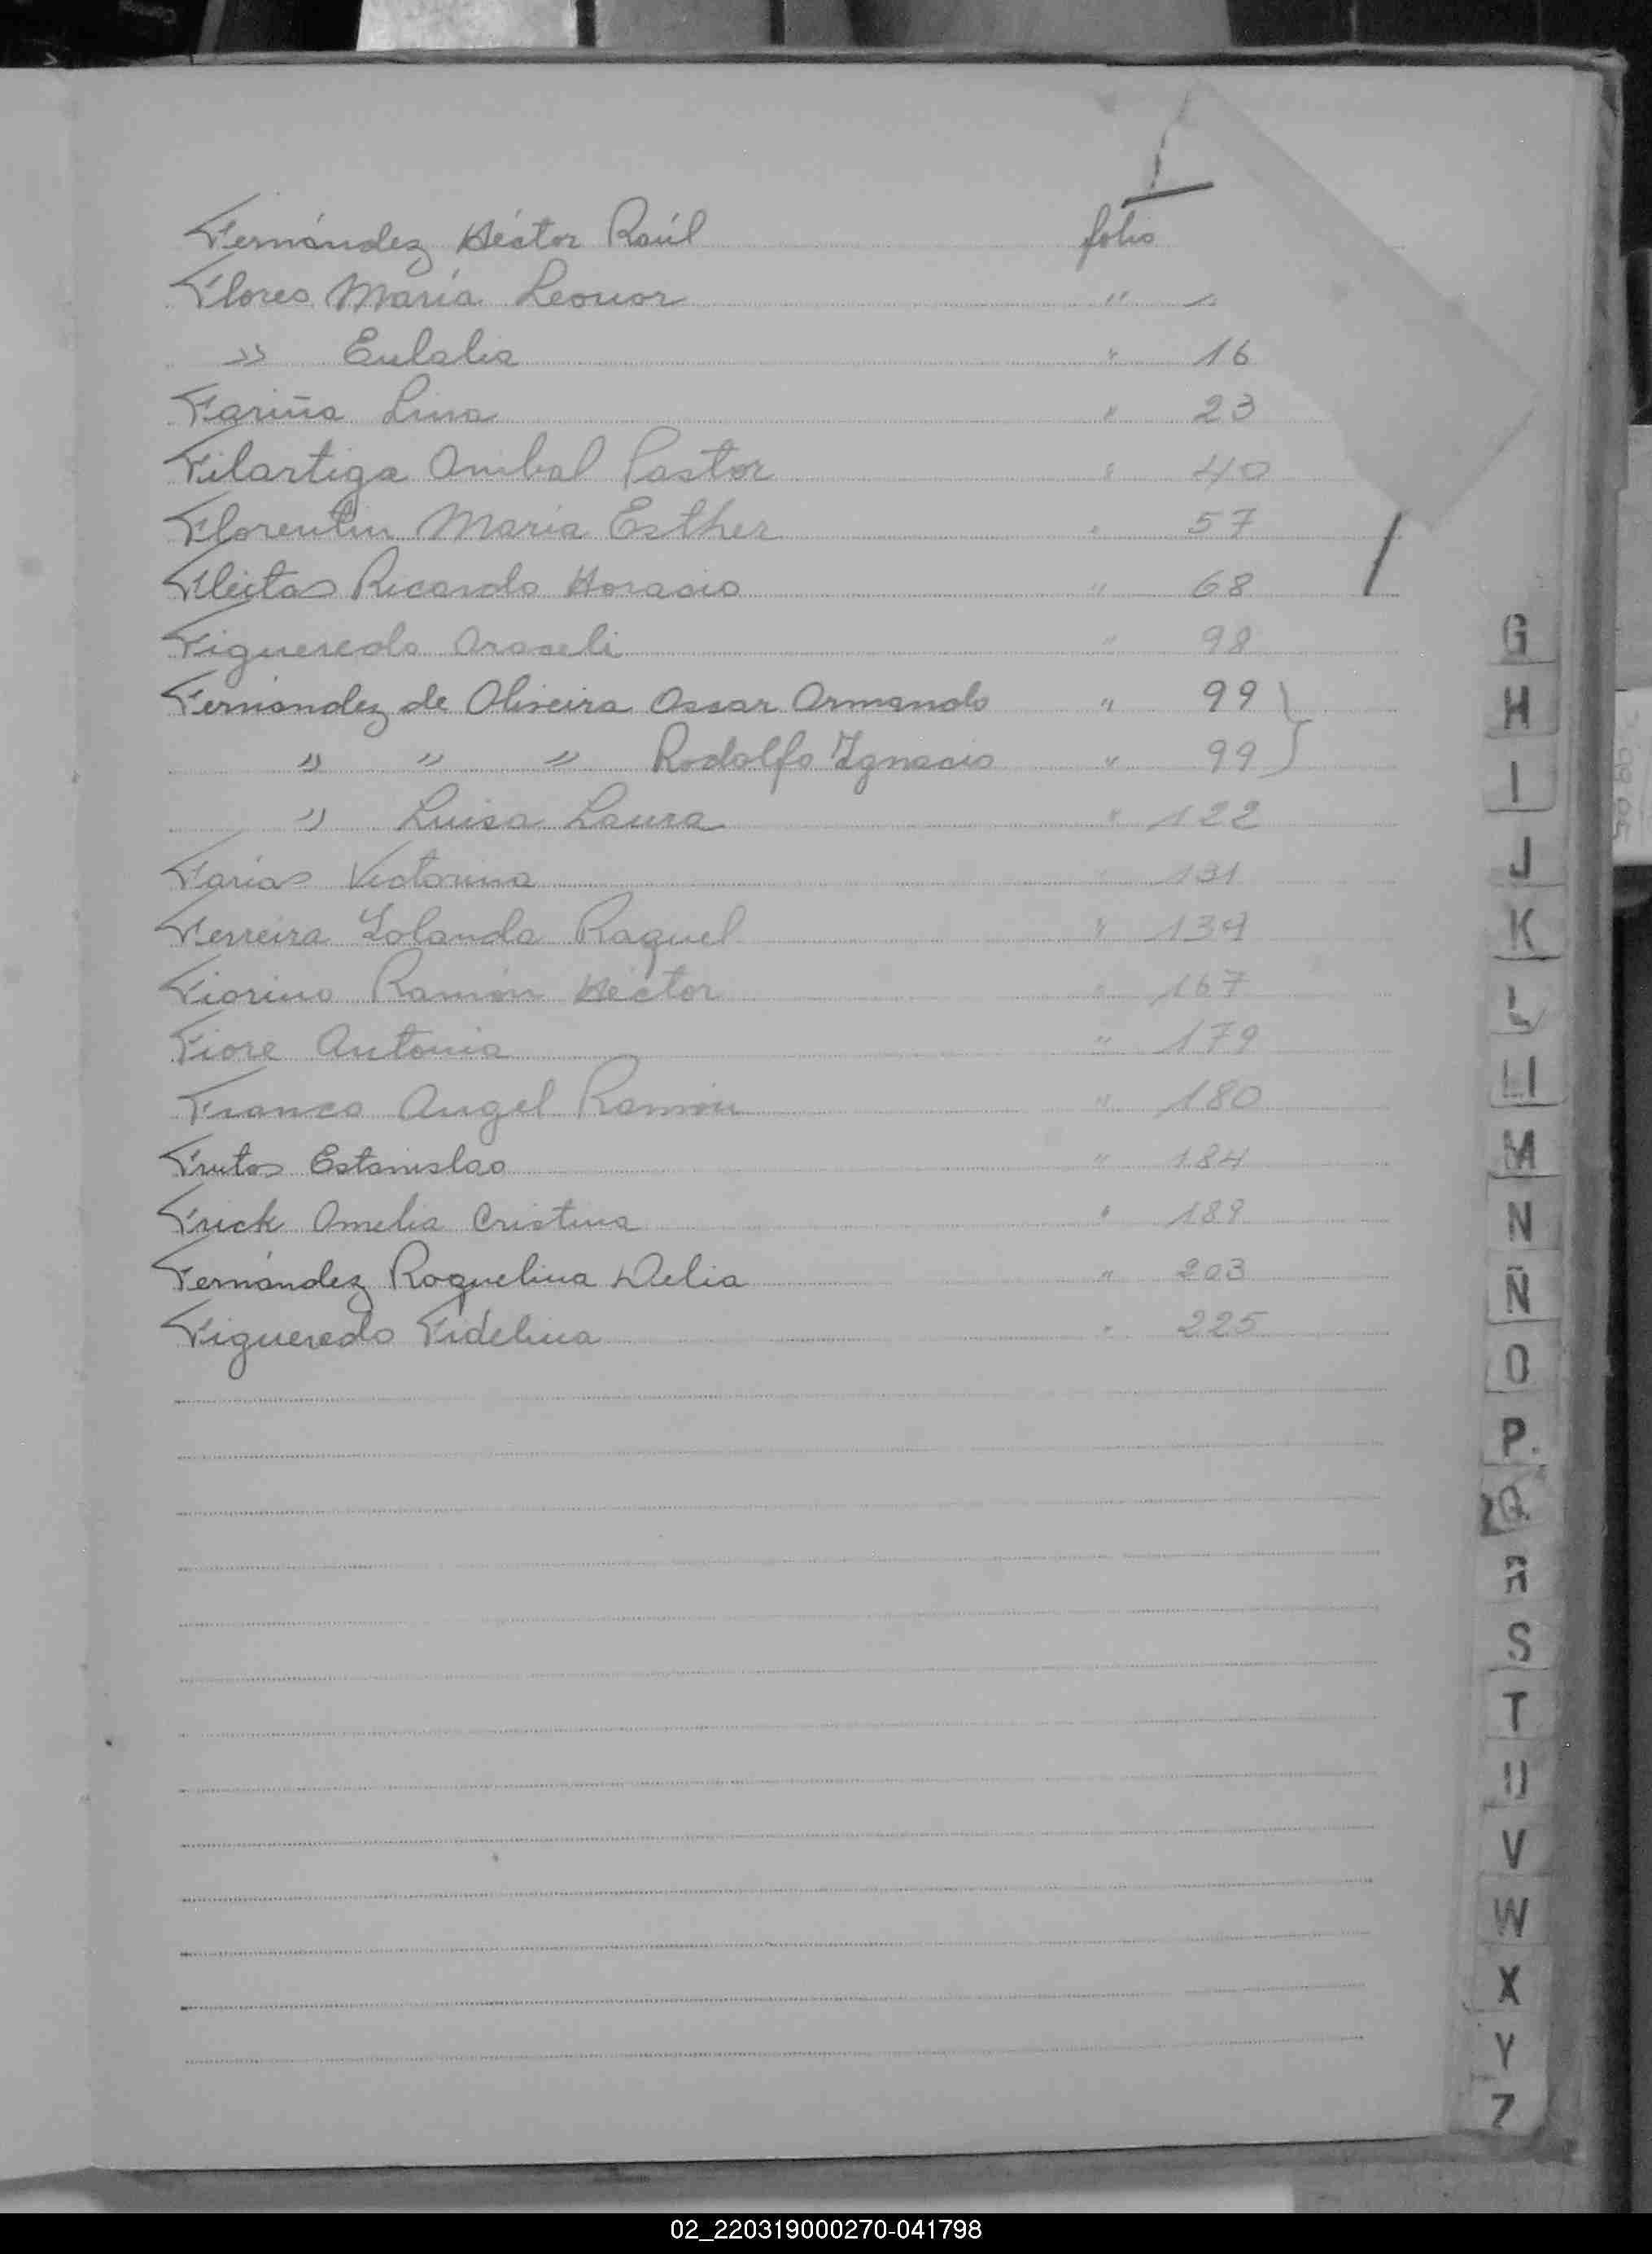 Fernández Héctor Raúl folio
Flores María Leonor " 1
" Eulalia " 16
Fariña Lina " 23
Filartiga Anibal Pastor " 40
Florentin Maria Esther " 57
Fleitas Ricardo Horacio " 68
Figueredo Araceli " 98
Fernández de Oliveira Oscar Armando " 99 }
" " " Rodolfo Ignacio " 99 }
" Luisa Laura " 122
Farias Victorina " 131
Ferreira Yolanda Raquel " 139
Fiorino Ramón Héctor " 167
Fiore Antonia " 179
Franco Angel Ramón " 180
Frutos Estanislao " 184
Frick Amelia Cristina " 189
Fernández Roquelina Delia " 203
Figueredo Fidelina " 225
G
H
I
J
K
L
Ll
M
N
Ñ
O
P
Q
R
S
T
U
V
W
X
Y
Z
02_220319000270-041798